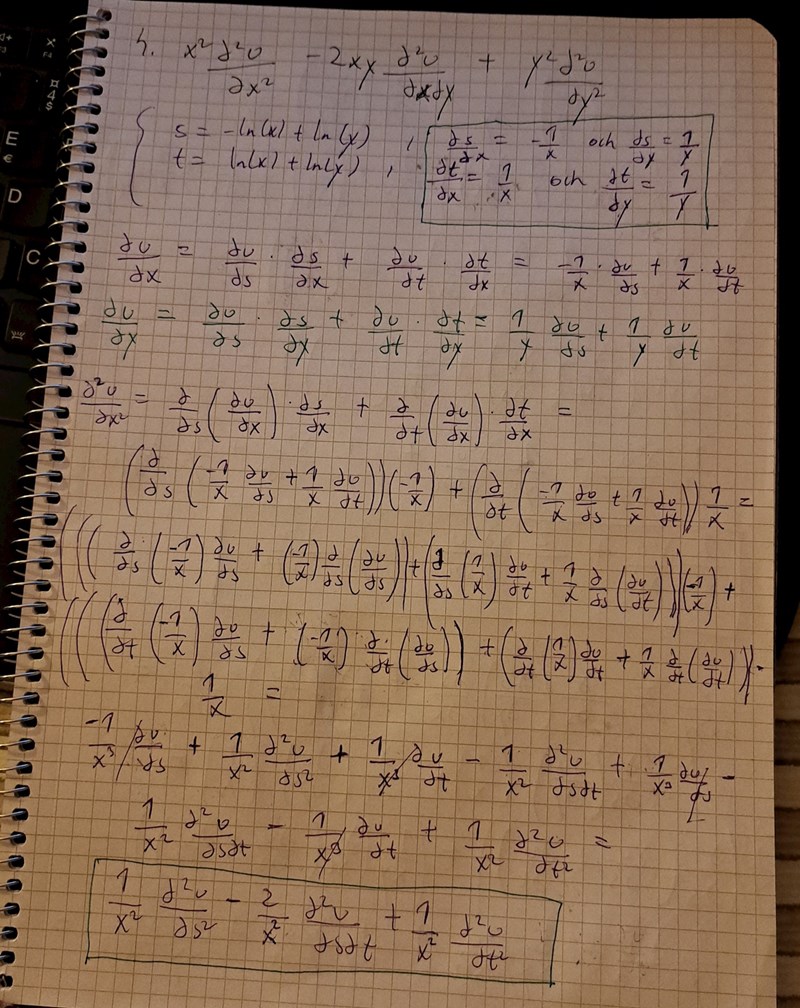 4. x² ∂²u/∂x² - 2xy ∂²u/∂x∂y + y² ∂²u/∂y²
{ s = -ln(x) + ln(y) , ∂s/∂x = -1/x och ∂s/∂y = 1/y
t = ln(x) + ln(y) , ∂t/∂x = 1/x och ∂t/∂y = 1/y
∂u/∂x = ∂u/∂s · ∂s/∂x + ∂u/∂t · ∂t/∂x = -1/x · ∂u/∂s + 1/x · ∂u/∂t
∂u/∂y = ∂u/∂s · ∂s/∂y + ∂u/∂t · ∂t/∂y = 1/y ∂u/∂s + 1/y ∂u/∂t
∂²u/∂x² = ∂/∂s (∂u/∂x) · ∂s/∂x + ∂/∂t (∂u/∂x) · ∂t/∂x =
(∂/∂s (-1/x ∂u/∂s + 1/x ∂u/∂t)) (-1/x) + (∂/∂t (-1/x ∂u/∂s + 1/x ∂u/∂t)) 1/x =
(((∂/∂s (-1/x) ∂u/∂s + (-1/x) ∂/∂s (∂u/∂s)) + (∂/∂s (1/x) ∂u/∂t + 1/x ∂/∂s (∂u/∂t))) (-1/x) +
(((∂/∂t (-1/x) ∂u/∂s + (-1/x) · ∂/∂t (∂u/∂s)) + (∂/∂t (1/x) ∂u/∂t + 1/x ∂/∂t (∂u/∂t))) ·
1/x =
-1/x³ ∂u/∂s + 1/x² ∂²u/∂s² + 1/x³ ∂u/∂t - 1/x² ∂²u/∂s∂t + 1/x³ ∂u/∂s -
1/x² ∂²u/∂s∂t - 1/x³ ∂u/∂t + 1/x² ∂²u/∂t² =
1/x² ∂²u/∂s² - 2/x² ∂²u/∂s∂t + 1/x² ∂²u/∂t²
E
€
D
C
X
4
$